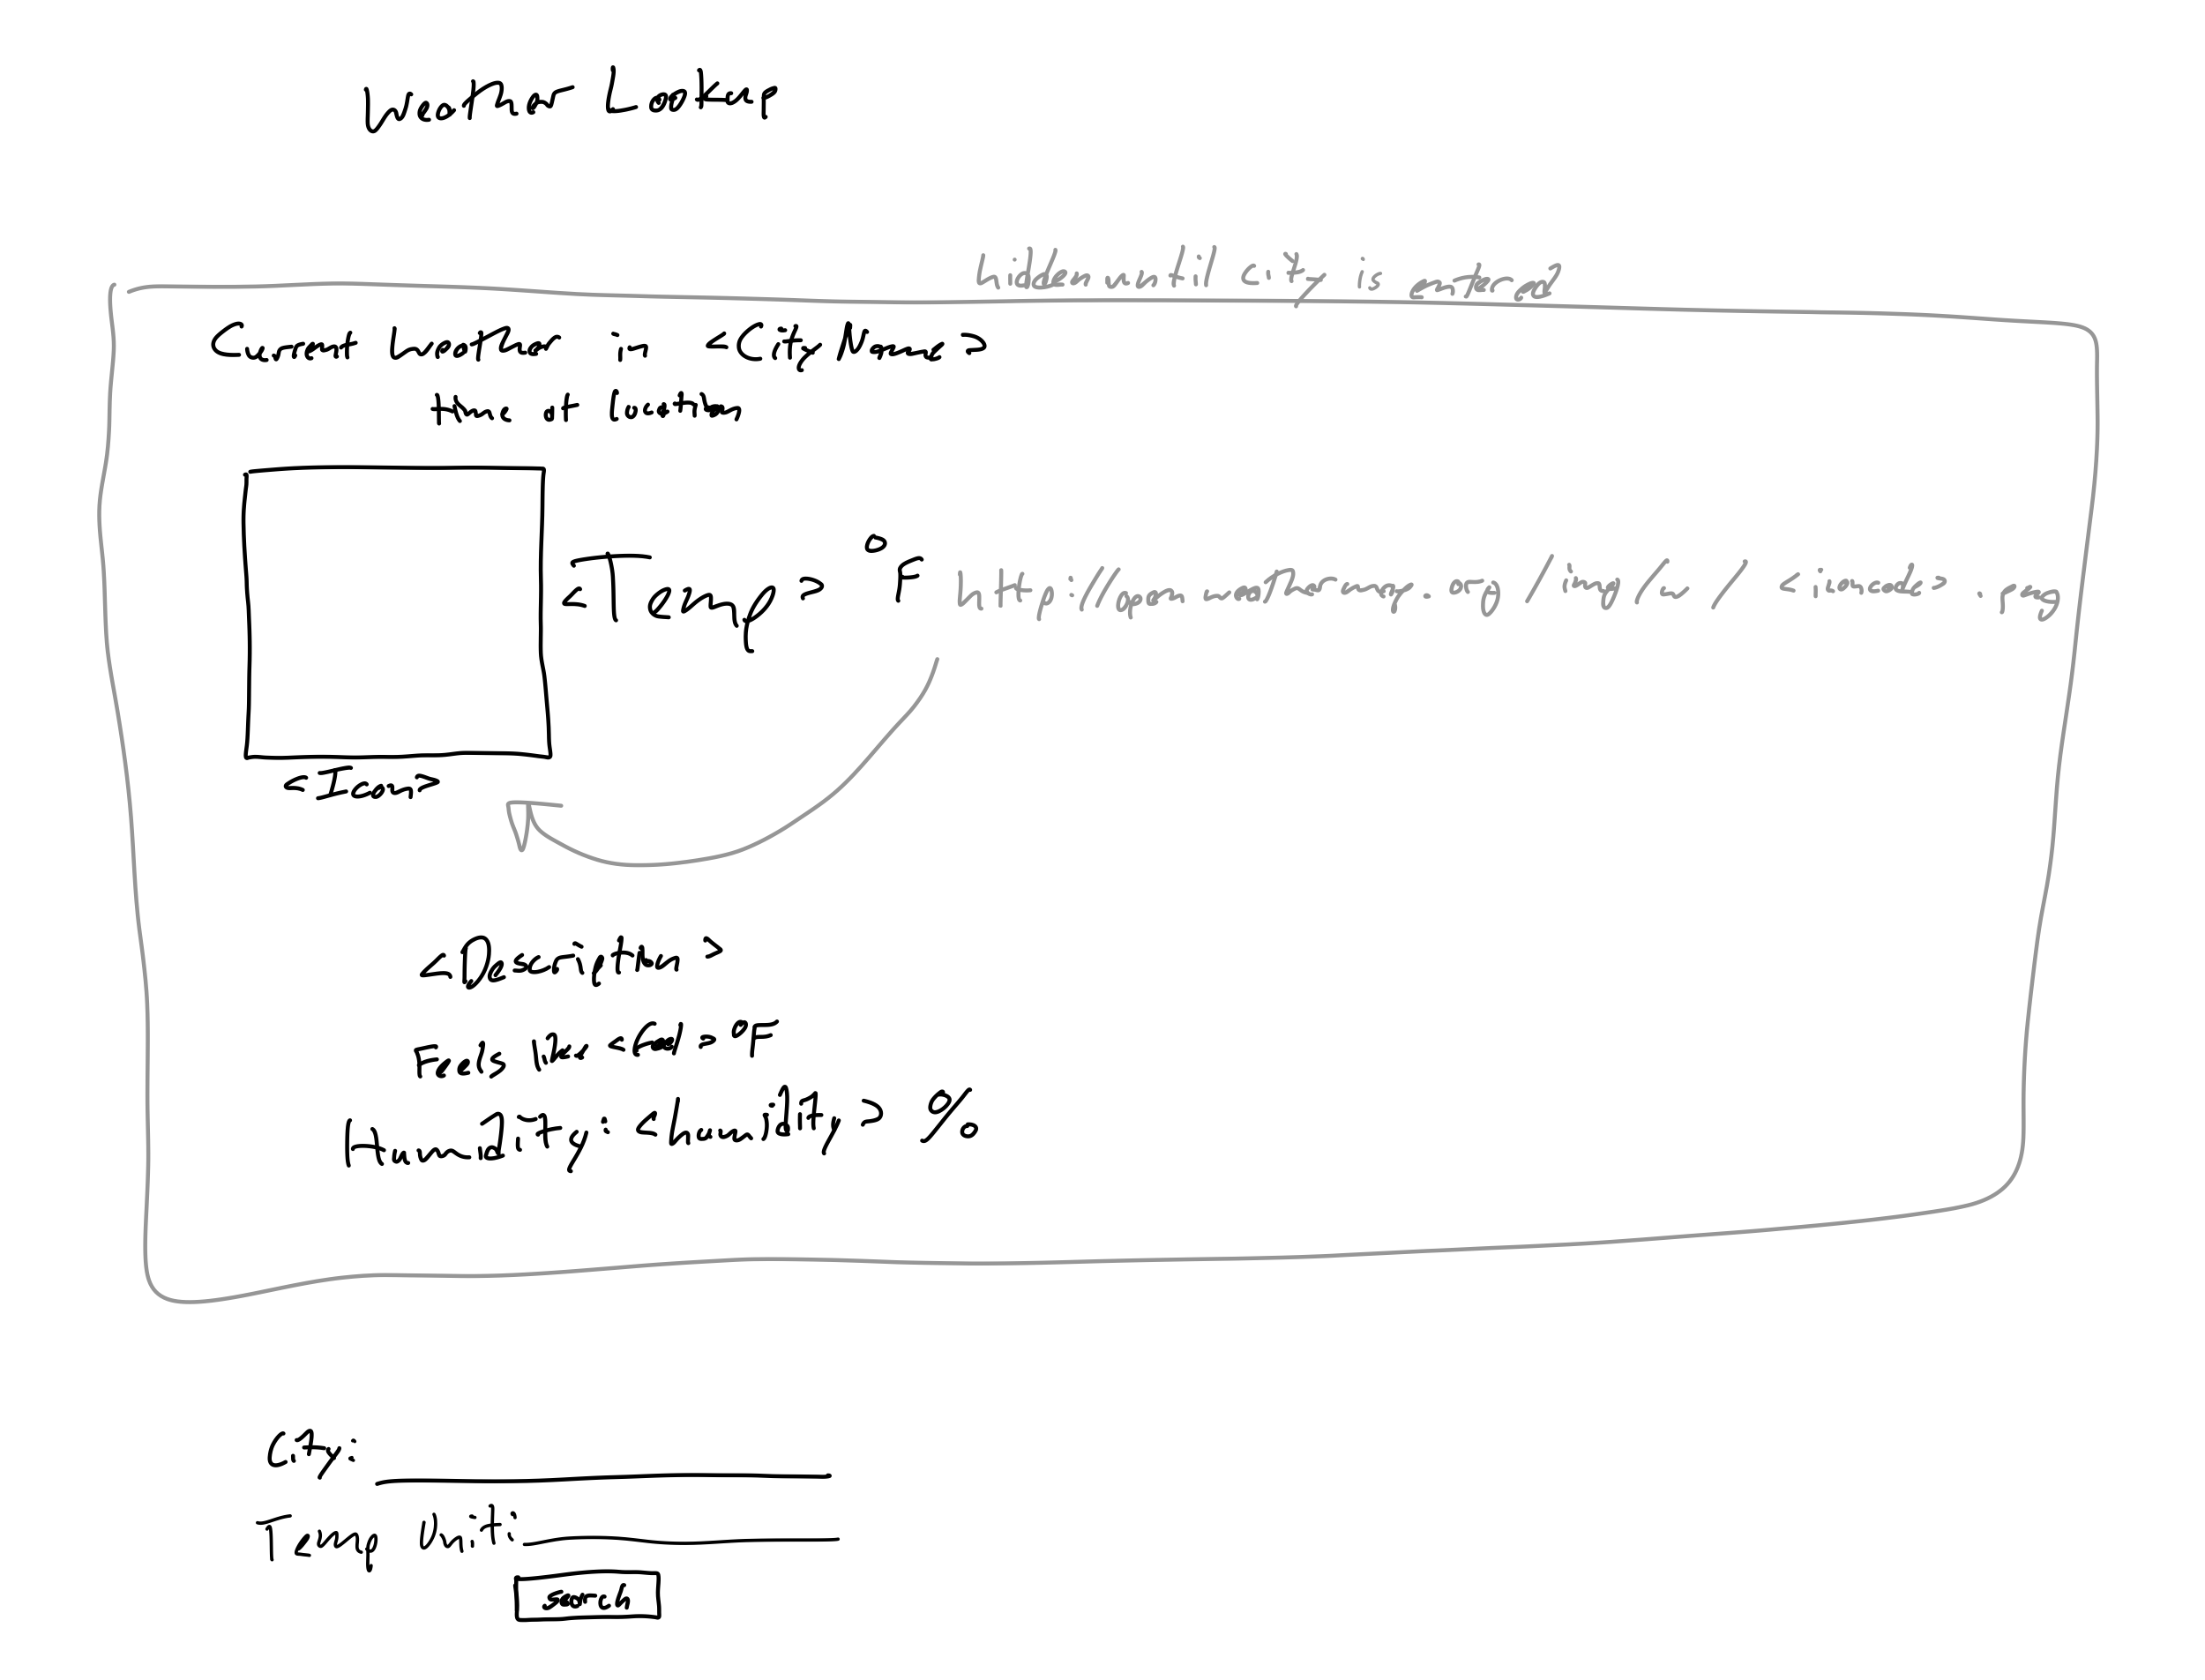 Weather Lookup
hidden until city is entered
Current Weather in <City Name>
time at location
<Temp> °F
http://openweathermap.org/img/w/<icon id>.png
<Icon>
<Description>
Feels like <Feel> °F
Humidity: <humidity> %
City:
Temp Unit:
search